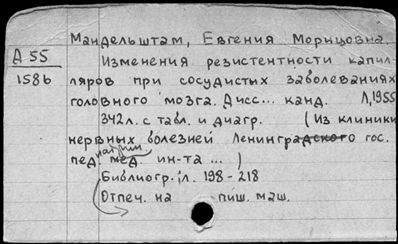 Мандельштам, Евгения Морицовна.
Д 55
1586
Изменения резистентности капил-
ляров при сосудистых заболеваниях
головного мозга. Дисс... канд. Л, 1955
342 л. с табл. и диагр. (Из клиники
нервных болезней Ленинградского гос.
пед. мед. ин-та ...)
Библиогр.: л. 198-218
Отпеч. на пиш. маш.